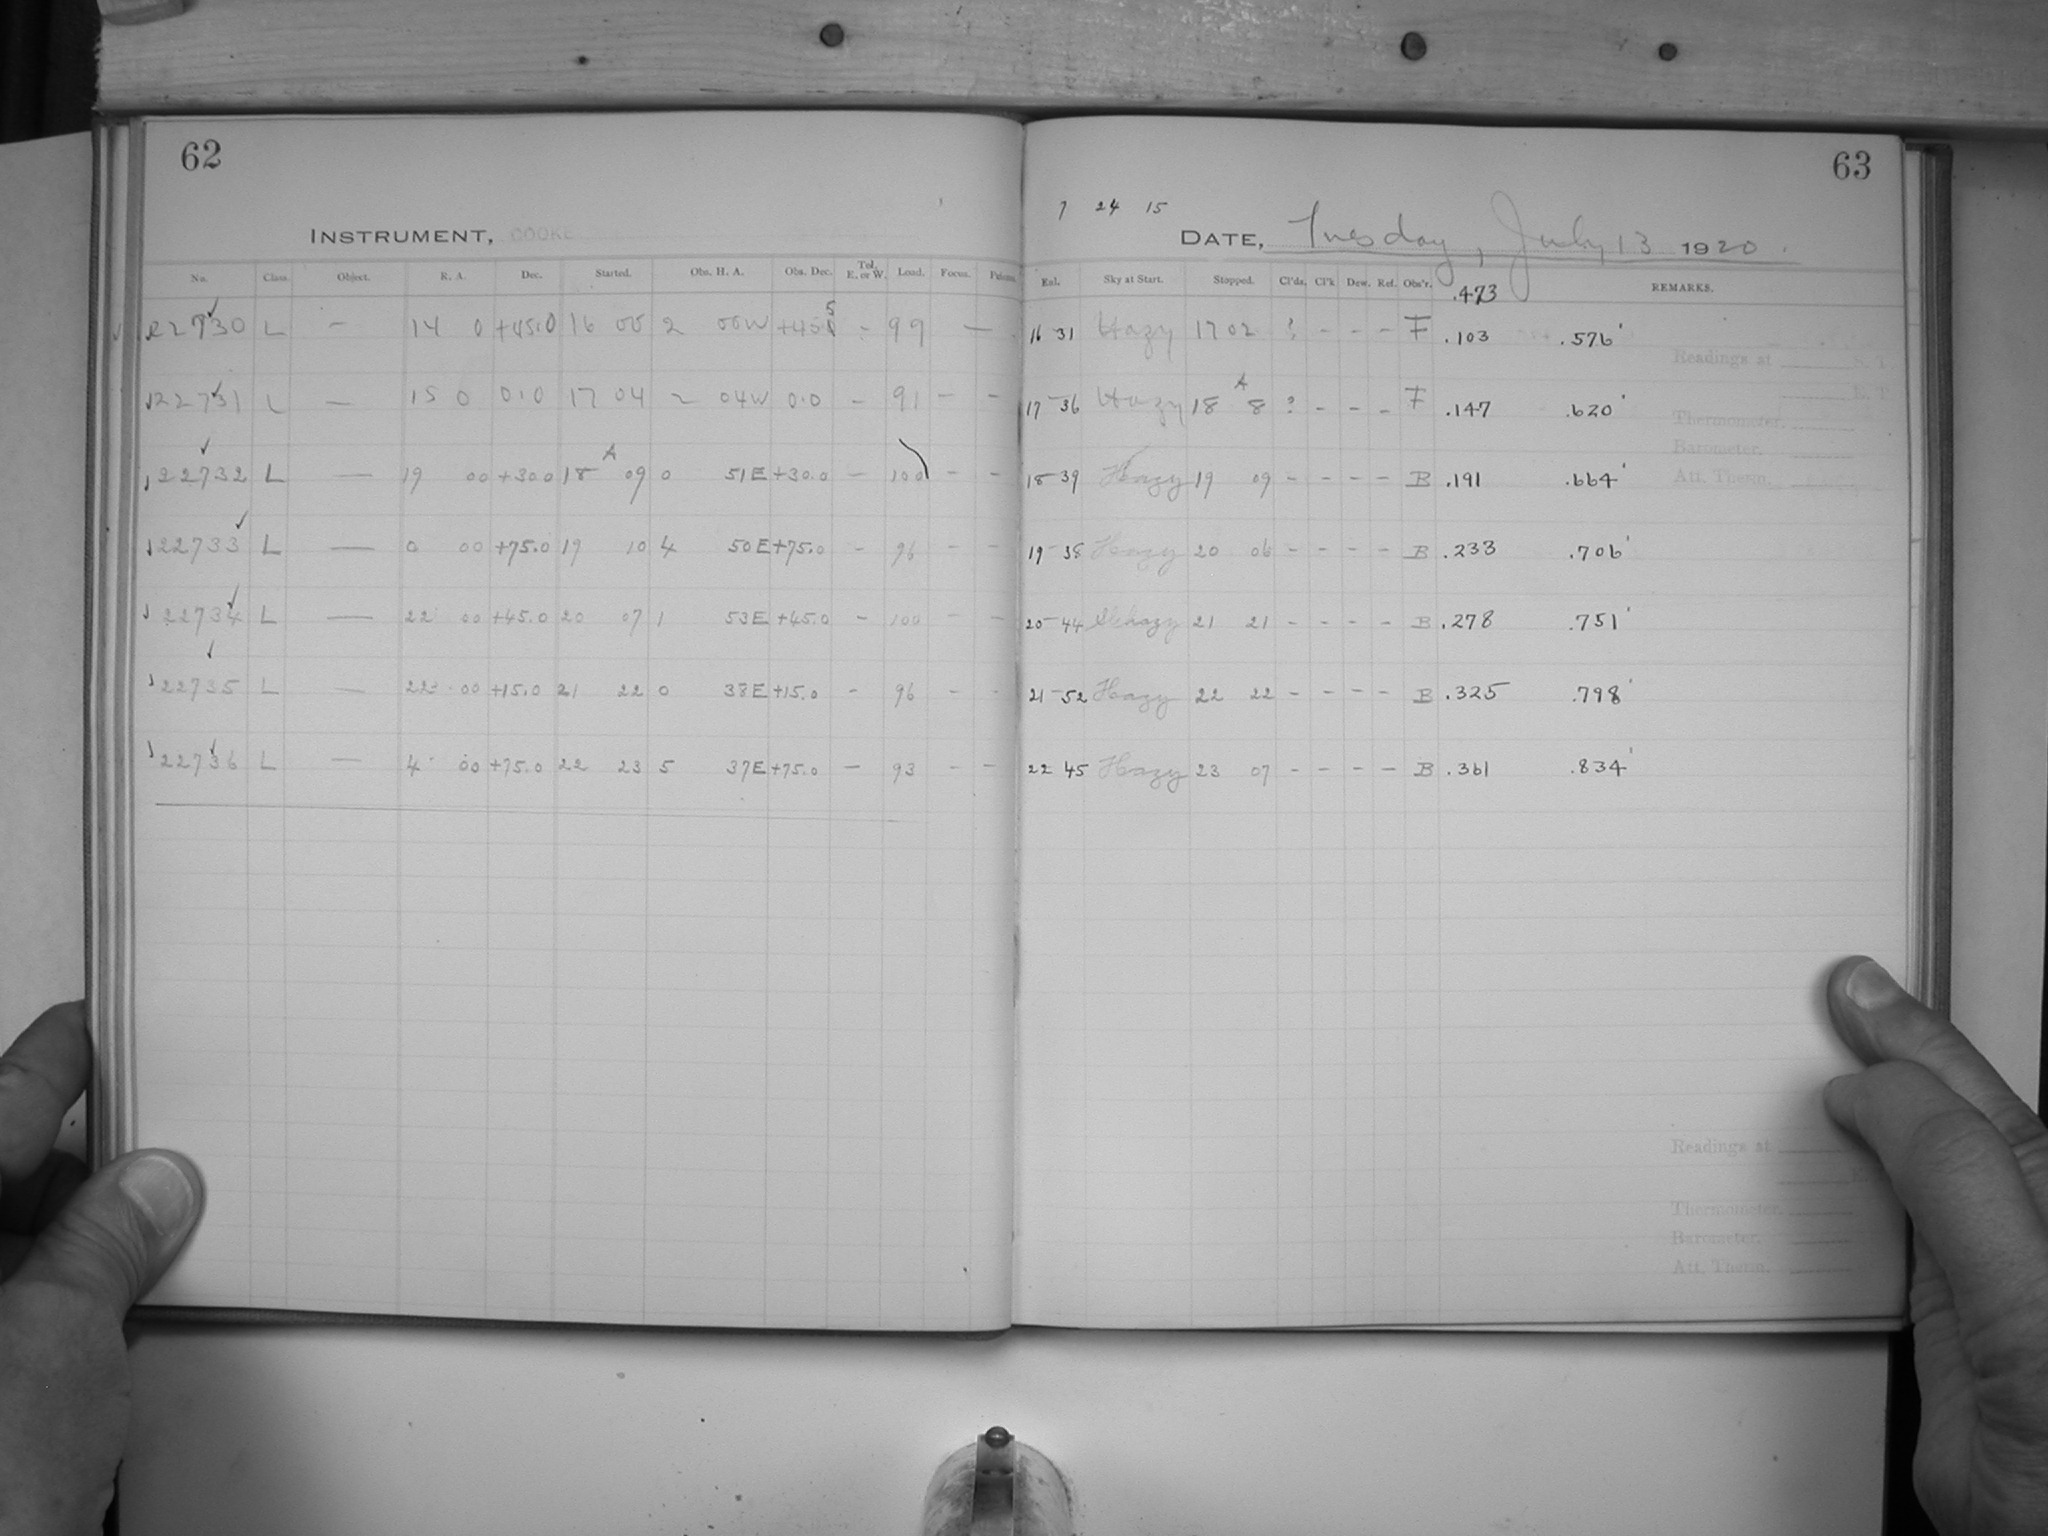 62
INSTRUMENT, COOKE
No. Class. Object. R. A. Dec. Started. Obs. H. A. Obs. Dec. Tel. E. or W. Load. Focus. Prisms.
22730 L — 14 0 +45.0 16 00 2 00W +45 - 99 —
22731 L — 15 0 0.0 17 04 2 04W 0.0 - 91 - -
22732 L — 19 00 +30.0 18 A 09 0 51E +30.0 - 100 - -
22733 L — 0 00 +75.0 19 10 4 50E +75.0 - 96 - -
22734 L — 22 00 +45.0 20 07 1 53E +45.0 - 100 - -
22735 L — 22 00 +15.0 21 22 0 38E +15.0 - 96 - -
22736 L — 4 00 +75.0 22 23 5 37E +75.0 - 93 - -
63
7 24 15
DATE, Tuesday, July 13 1920.
Exl. Sky at Start. Stopped. Cl'ds. Cl'k Dew. Ref. Obs'r. REMARKS.
.473
16 31 Hazy 17 02 ? - - - F .103 .576
17-36 Hazy 18 A 8 ? - - - F .147 .620
18-39 Hazy 19 09 - - - - B .191 .664
19-38 Hazy 20 06 - - - - B .233 .706
20-44 Slhazy 21 21 - - - - B .278 .751
21-52 Hazy 22 22 - - - - B .325 .798
22 45 Hazy 23 07 - - - - B .361 .834
Readings at S. T.
E. T.
Thermometer.
Barometer.
Att. Therm.
Readings at
Thermometer.
Barometer.
Att. Therm.